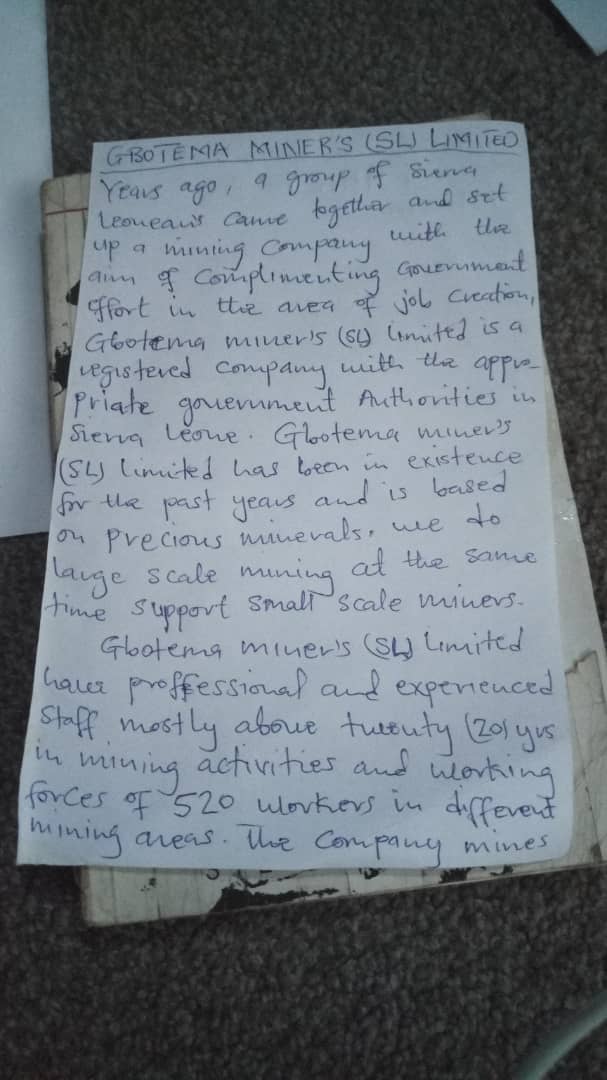 GBOTEMA MINER'S (SL) LIMITED
Years ago, a group of Sierra
Leonean's came together and set
up a mining company with the
aim of complimenting Government
effort in the area of job creation,
Gbotema miner's (SL) limited is a
registered company with the appro-
priate government Authorities in
Sierra Leone. Gbotema miner's
(SL) limited has been in existence
for the past years and is based
on precious minerals, we do
large scale mining at the same
time support small scale miners.
Gbotema miner's (SL) Limited
have proffessional and experienced
staff mostly above twenty (20) yrs
in mining activities and working
forces of 520 workers in different
mining areas. The company mines